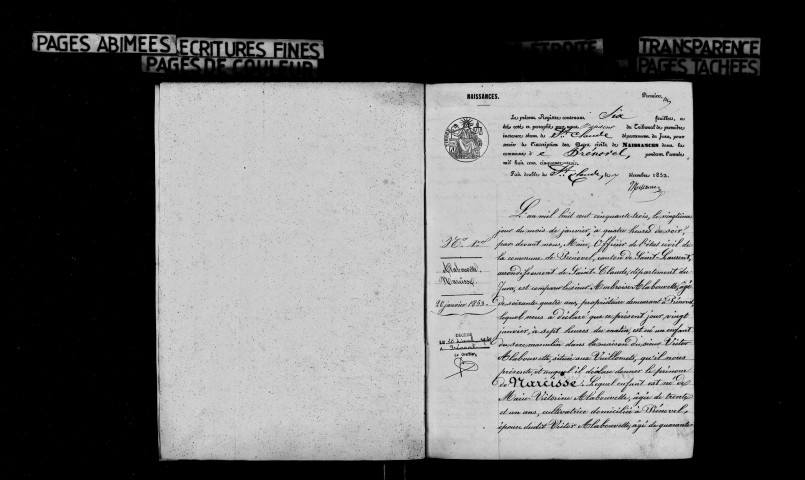 PAGES ABIMEES
ECRITURES FINES
PAGES DE COULEUR
ETROITE
TRANSPARENCE
PAGES TACHÉES
NAISSANCES.
Le présent Registre contenant Six feuillets, a
été coté et paraphé par nous du Tribunal de première
instance séant de St. Claude département du Jura, pour
servir de l'inscription des Actes civils de NAISSANCES dans la
commune de Prénovel, pendant l'année
mil huit cent cinquante-trois.
Fait double à St. Claude, le décembre 1852.
L'an mil huit cent cinquante-trois, le vingtième
jour du mois de janvier, à quatre heures du soir,
par devant nous, Maire, Officier de l'état civil de
la commune de Prénovel, canton de Saint-Laurent,
arrondissement de Saint-Claude, département du
Jura, est comparu le sieur Ambroise Alabouvette, âgé
de soixante quatre ans, propriétaire demeurant à Prénovel,
lequel nous a déclaré que ce présent jour, vingt
janvier, à sept heures du matin, est né un enfant
du sexe masculin dans la maison du sieur Victor
Alabouvette, située aux qu'il nous
présente, et auquel il déclare donner le prénom
de Narcisse. Lequel enfant est né de
Marie Victorine Alabouvette, âgée de trente
et un ans, cultivatrice domiciliée à Prénovel,
épouse dudit Victor Alabouvette, âgé de quarante
N° 1er
Alabouvette
Narcisse
20 janvier 1853.